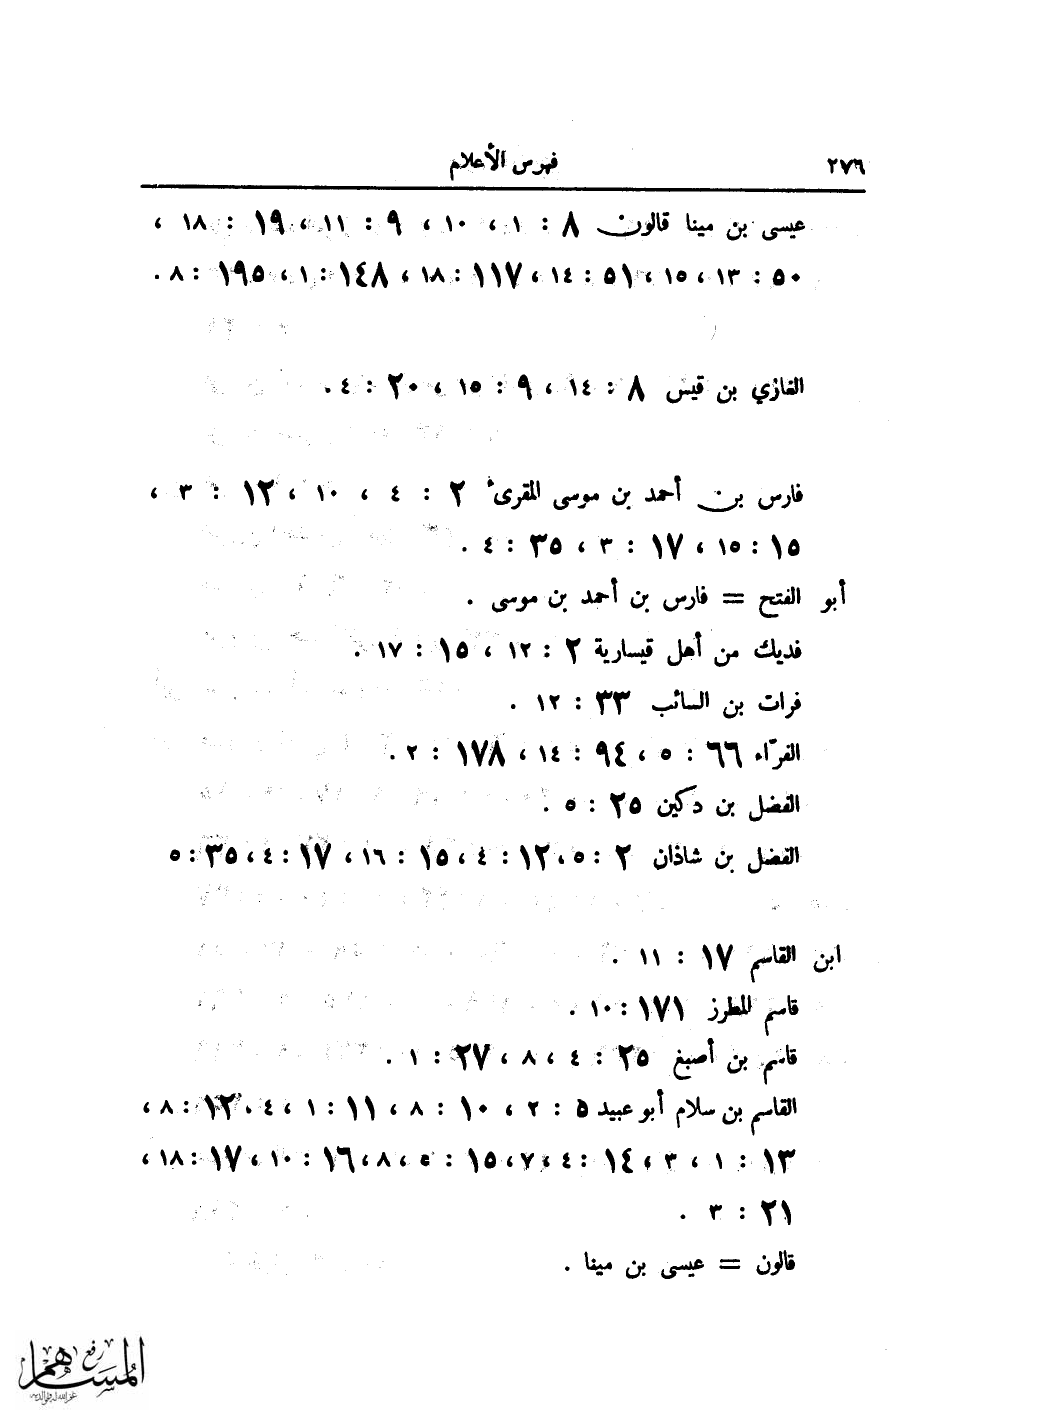 ٢٧٦ فهرس الأعلام
عيسى بن مينا قالون ٨ : ١ ، ١٠ ، ٩ : ١١ ، ١٩ : ١٨ ،
٥٠ : ١٣ ، ١٥ ، ٥١ : ١٤ ، ١١٧ : ١٨ ، ١٤٨ : ١ ، ١٩٥ : ٨ .
الغازي بن قيس ٨ : ١٤ ، ٩ : ١٥ ، ٢٠ : ٤ .
فارس بن أحمد بن موسى المقرئ ٢ : ٤ ، ١٠ ، ١٢ : ٣ ،
١٥ : ١٥ ، ١٧ : ٣ ، ٣٥ : ٤ .
أبو الفتح = فارس بن أحمد بن موسى .
فديك من أهل قيسارية ٢ : ١٢ ، ١٥ : ١٧ .
فرات بن السائب ٣٣ : ١٢ .
الفرّاء ٦٦ : ٥ ، ٩٤ : ١٤ ، ١٧٨ : ٢ .
الفضل بن دكين ٢٥ : ٥ .
الفضل بن شاذان ٢ : ٥ ، ١٢ : ٤ ، ١٥ : ١٦ ، ١٧ : ٤ ، ٣٥ : ٥
ابن القاسم ١٧ : ١١ .
قاسم المطرز ١٧١ : ١٠ .
قاسم بن أصبغ ٢٥ : ٤ ، ٨ ، ٢٧ : ١ .
القاسم بن سلام أبو عبيد ٥ : ٢ ، ١٠ : ٨ ، ١١ : ١ ، ٤ ، ١٢ : ٨ ،
١٣ : ١ ، ٣ ، ١٤ : ٤ ، ٧ ، ١٥ : ٥ ، ٨ ، ١٦ : ١٠ ، ١٧ : ١٨ ،
٢١ : ٣ .
قالون = عيسى بن مينا .
رفع
المساهم